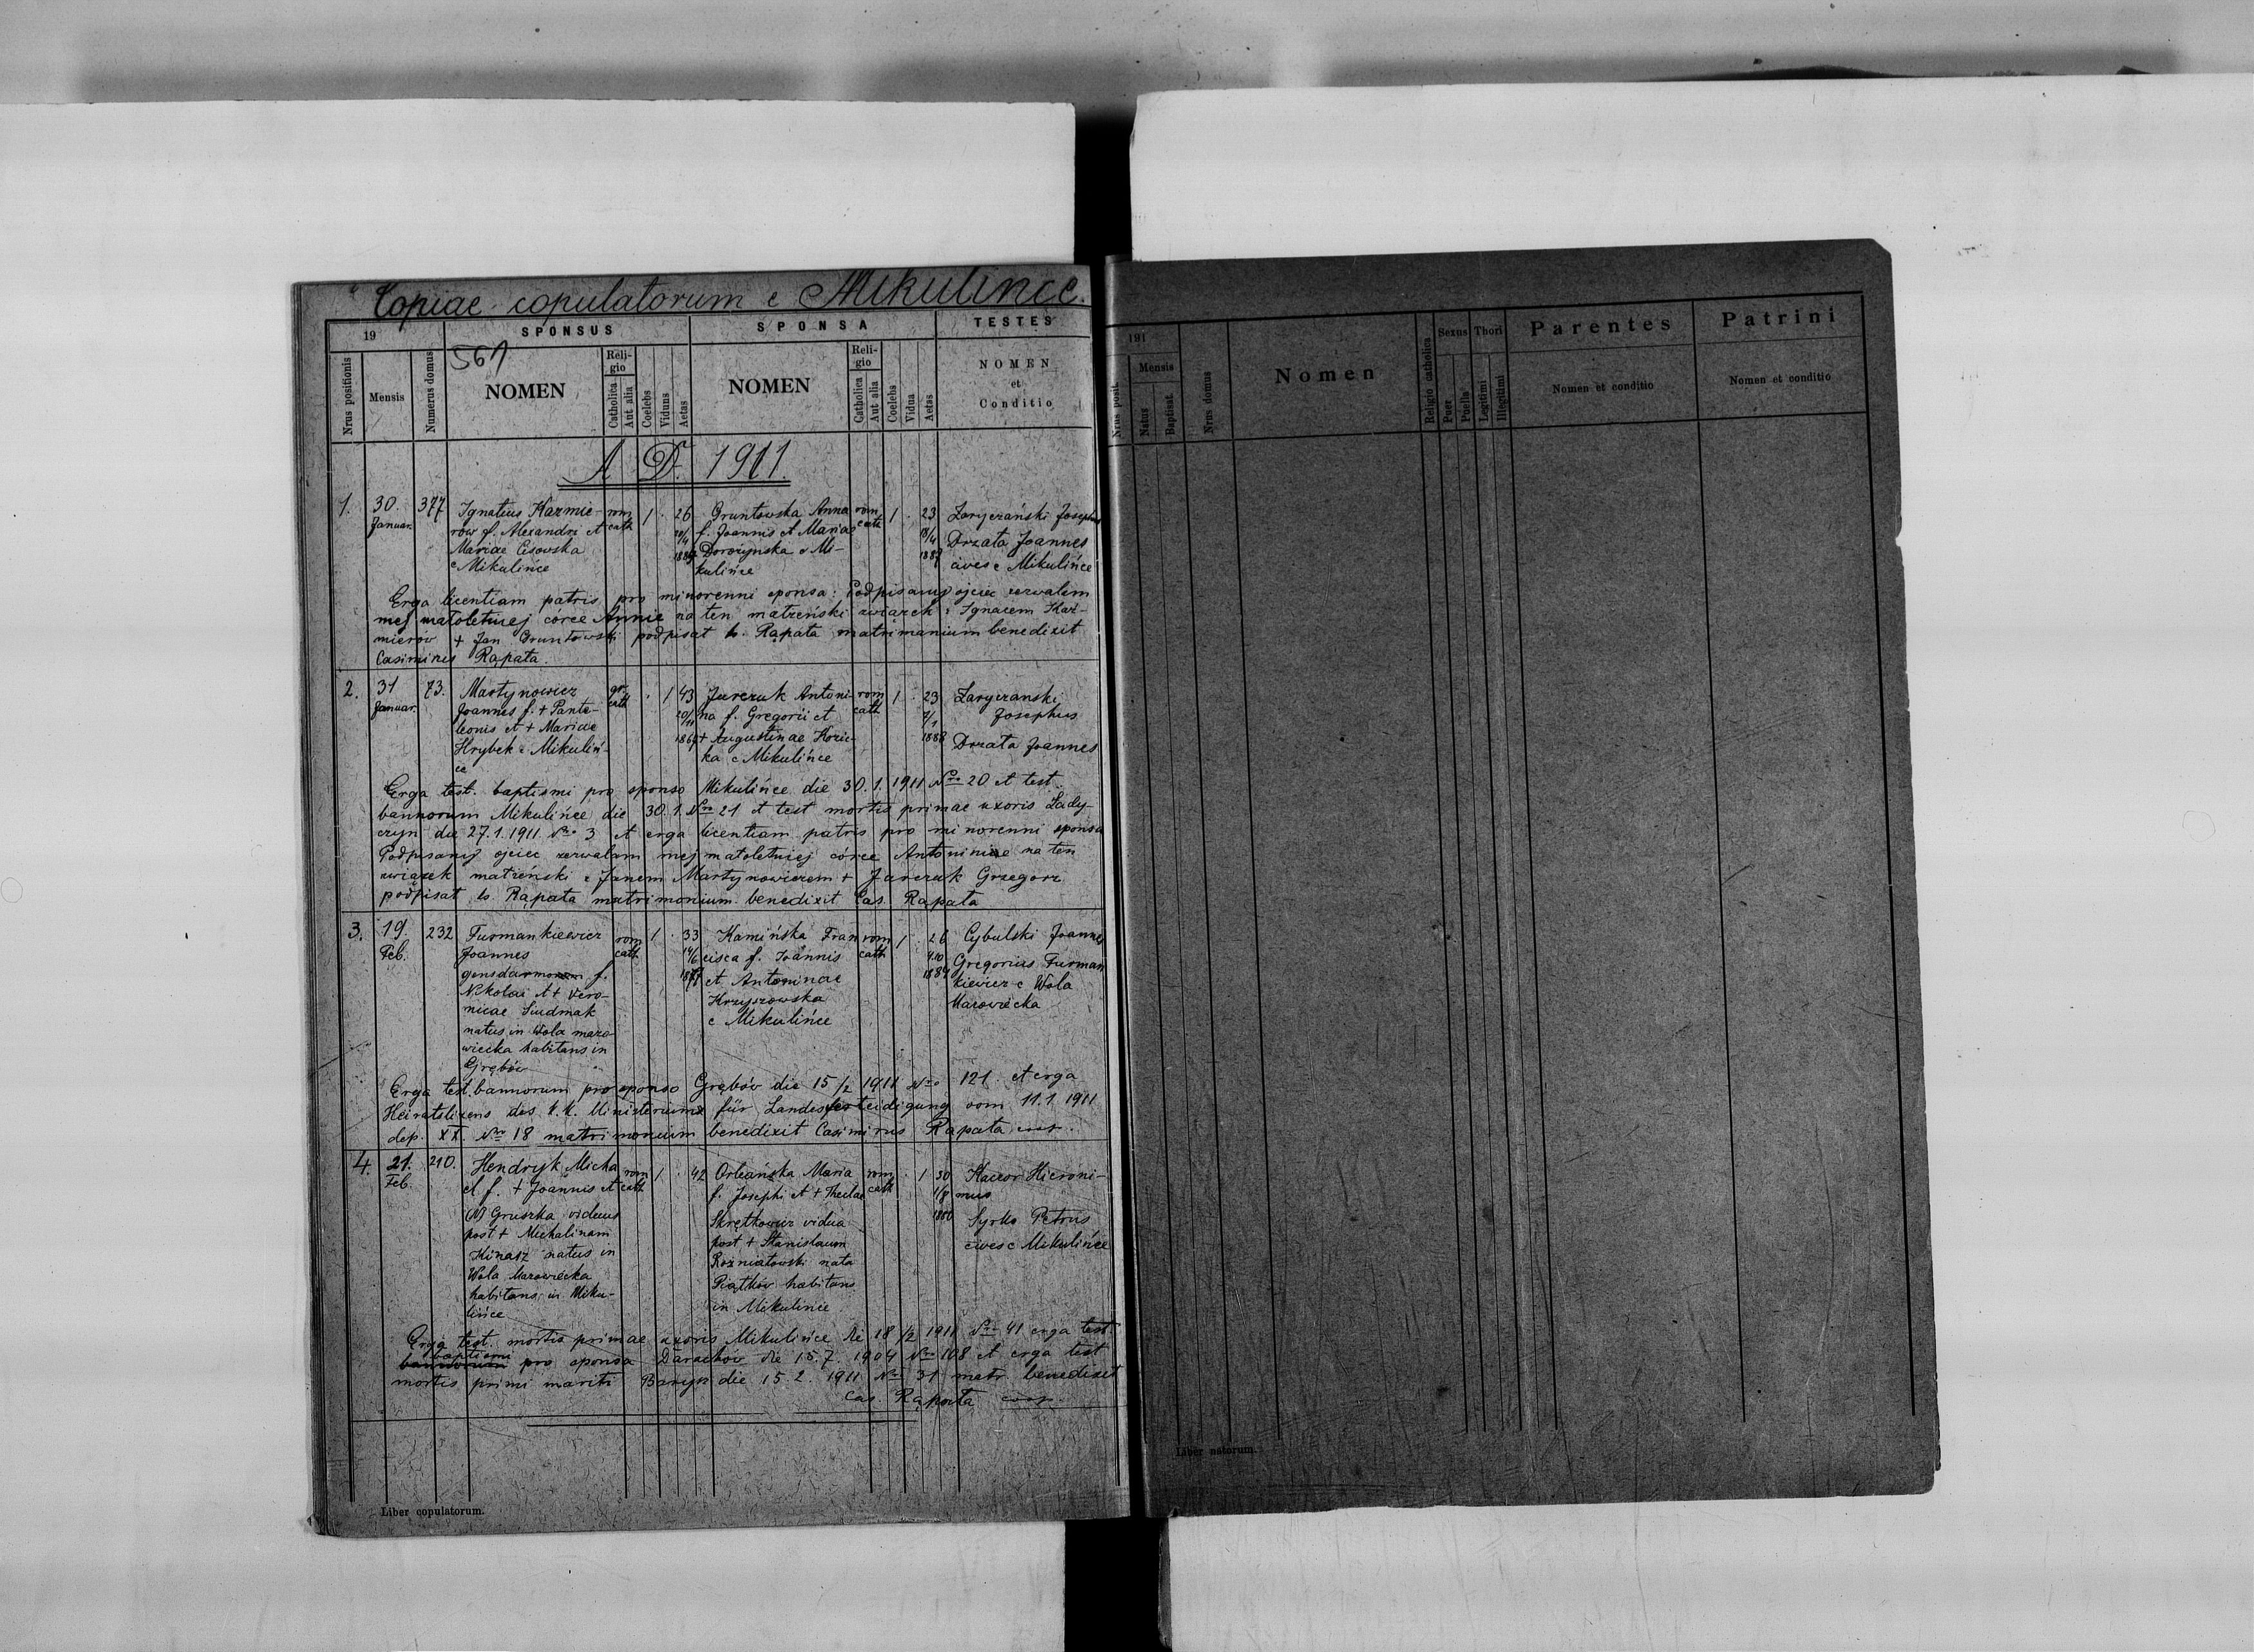 Copiae copulatorum e Mikulińce.
19
SPONSUS
SPONSA
TESTES
561
Nrus positionis
Mensis
Numerus domus
NOMEN
Religio
Catholica
Aut alia
Coelebs
Viduus
Aetas
NOMEN
Religio
Catholica
Aut alia
Coelebs
Vidua
Aetas
NOMEN
et
Conditio
A. D. 1911.
1.
30.
Januar.
377
Ignatius Kazmie-
rów f. Alexandri et
Mariae Cisowska
e Mikulińce
rom
cath
1
26
Gruntowska Anna
f. Joannis et Mariae
Dorożyńska e Mi-
kulińce
rom
cath
1
23
Zaryczański Josephus
Drzata Joannes
cives e Mikulińce
Erga licentiam patris pro minorenni sponsa: Podpisany ojciec zezwalam
mej małoletniej córce Annie na ten małżeński związek z Ignacem Kaź-
mierów + Jan Gruntowski podpisał ks. Rąpała matrimonium benedixit
Casimirus Rąpała.
2.
31
Januar.
73.
Martynowicz
Joannes f. + Pante-
leonis et + Mariae
Hrybek e Mikuliń-
ce
gr.
cath
1
43
20/11
1867
Jarczuk Antoni-
na f. Gregorii et
+ Augustinae Kozic-
ka e Mikulińce
rom
cath
1
23
7/1
1888
Zaryczanski
Josephus
Drzata Joannes
Erga test. baptismi pro sponso Mikulińce die 30.1.1911 Nro 20 et test.
bannorum Mikulińce die 30.1. Nro 21 et test mortis primae uxoris Łady-
czyn die 27.1.1911 Nro 3 et erga licentiam patris pro minorenni sponsa
Podpisany ojciec zezwalam mej małoletniej córce Antoninie na ten
związek małżeński z Janem Martynowiczem + Jarczuk Grzegorz
podpisał ks. Rąpała matrimonium benedixit Cas. Rąpała
3.
19.
Feb.
232
Furmankiewicz
Joannes
f.
Nikolai et + Vero-
nicae Smdmak
natus in Wola mazo-
wiecka habitans in
Grębów
rom
cath
1
33
14/6
Kamińska Fran
cisca f. Joannis
et Antoninae
Krzyszowska
e Mikulińce
rom
cath
1
26
4/10
1884
Cybulski Joannes
Gregorius Furman
kiewicz e Wola
Mazowiecka
Erga test. bannorum pro sponso Grębów die 15/2 1911 Nro 121 et erga
Heiratslizens des k.k. Ministeriums für Landesverteidigung vom 11.1 1911
dep. XX. Nro 18 matrimonium benedixit Casimirus Rąpała
4.
21.
Feb.
210.
Hendryk Micha
el f. + Joannis et
(N) Gruszka viduus
post + Michalinam
Kinasz natus in
Wola Mazowiecka
habitans in Miku-
lińce
rom
cath
1
42
Orleańska Maria
f. Josephi et + Theclae
Skrętkowicz vidua
post + Stanislaum
Rozniatowski nata
Piątków habitans
in Mikulińce
rom
cath
1
30
1/8
1880
Kaczor Hieroni-
mus
Syrko Petrus
cives e Mikulińce
Erga test. mortis primae uxoris Mikulińce die 18/2 1911 Nro 41 erga test
baptismi
bannorum pro sponsa Darachów die 15.7. 1904 Nro 108 et erga test
mortis primi mariti Barysz die 15.2. 1911 Nro 31 matr. benedixit
Cas. Rąpała coop.
Liber copulatorum.
191
Nrus posit.
Mensis
Natus
Baptisat.
Nrus domus
Nomen
Religio catholica
Sexus
Puer
Puella
Thori
Legitimi
Illegitimi
Parentes
Nomen et conditio
Patrini
Nomen et conditio
Liber natorum.